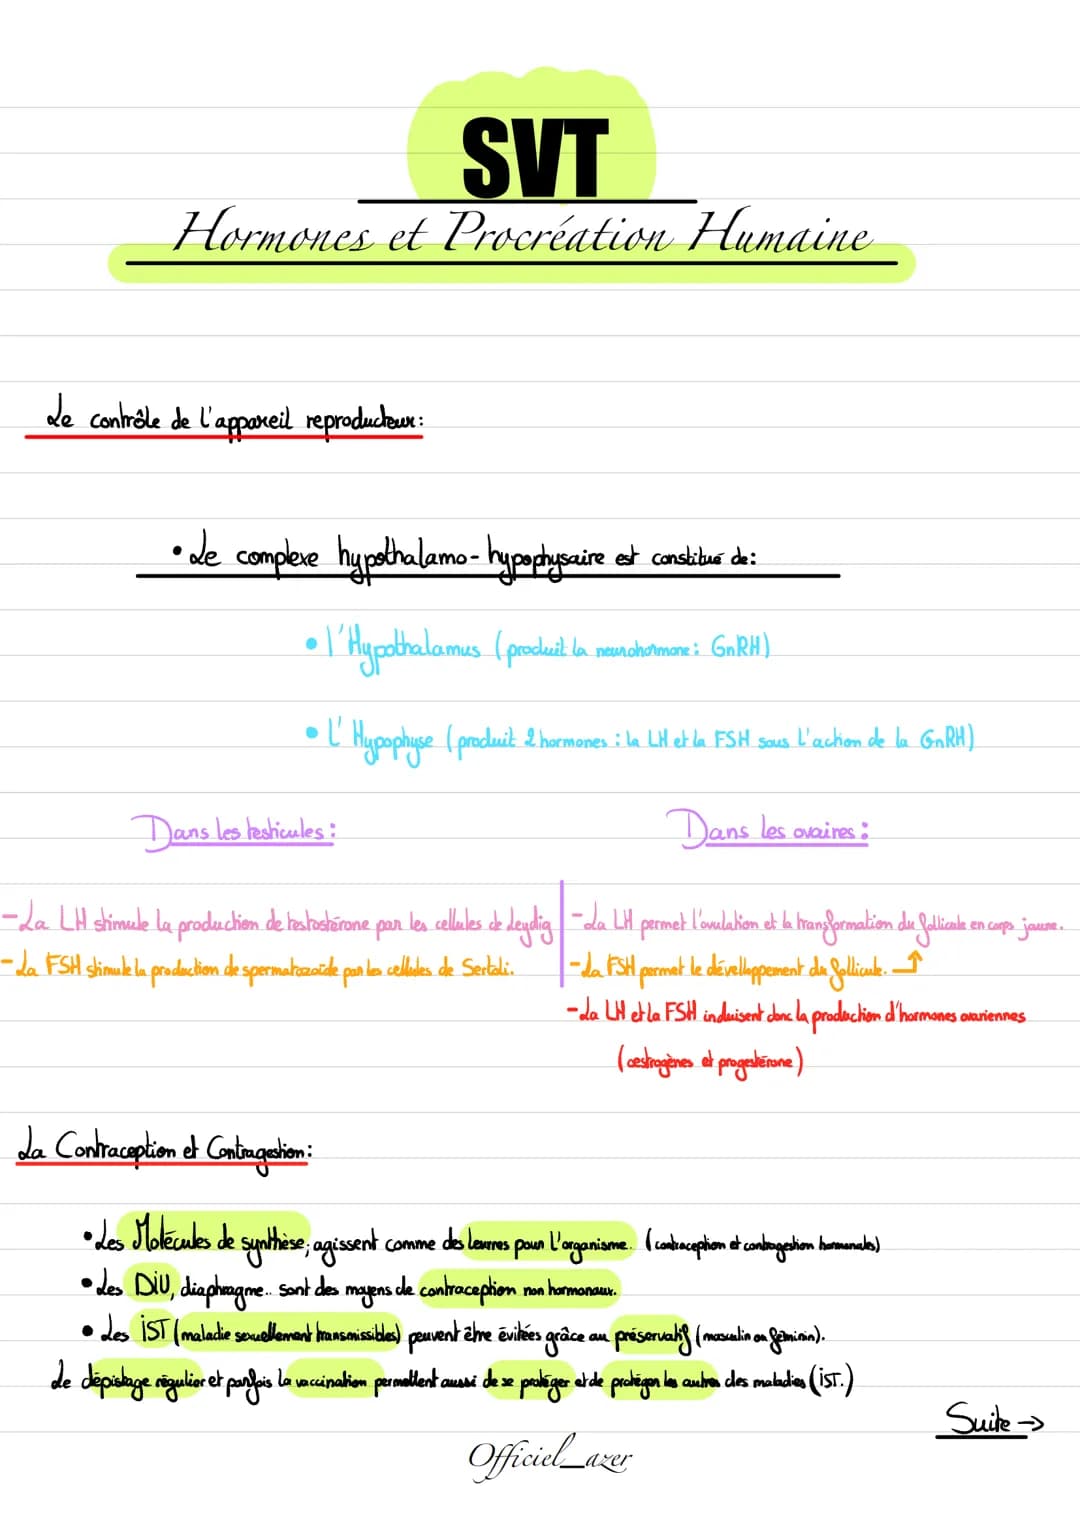 SVT
Hormones et Procréation Humaine
Le contrôle de l'appareil reproducteur:
• Le complexe hypothalamo-hypophysaire est constitué de:
• l'Hypothalamus (produit la neurohormone: GnRH)
• L'Hypophyse (produit 2 hormones : la LH et la FSH sous l'action de la GnRH)
Dans les testicules :
Dans les ovaires :
- La LH stimule la production de testostérone par les cellules de Leydig
- La FSH stimule la production de spermatozoïde par les cellules de Sertoli.
- La LH permet l'ovulation et la transformation du follicule en corps jaune.
- La FSH permet le dévelloppement du follicule.
- La LH et la FSH induisent donc la production d'hormones ovariennes
(œstrogènes et progestérone)
La Contraception et Contragestion:
• Les Molécules de synthèse, agissent comme des leurres pour l'organisme. (contraception et contragestion hormonales)
• Les DiU, diaphragme.. sont des moyens de contraception non hormonaux.
• Les iST (maladie sexuellement transmissibles) peuvent être évitées grâce au préservatif (masculin ou féminin).
Le dépistage régulier et parfois la vaccination permettent aussi de se protéger et de protéger les autres des maladies (iST.)
Suite →
Officiel_azer